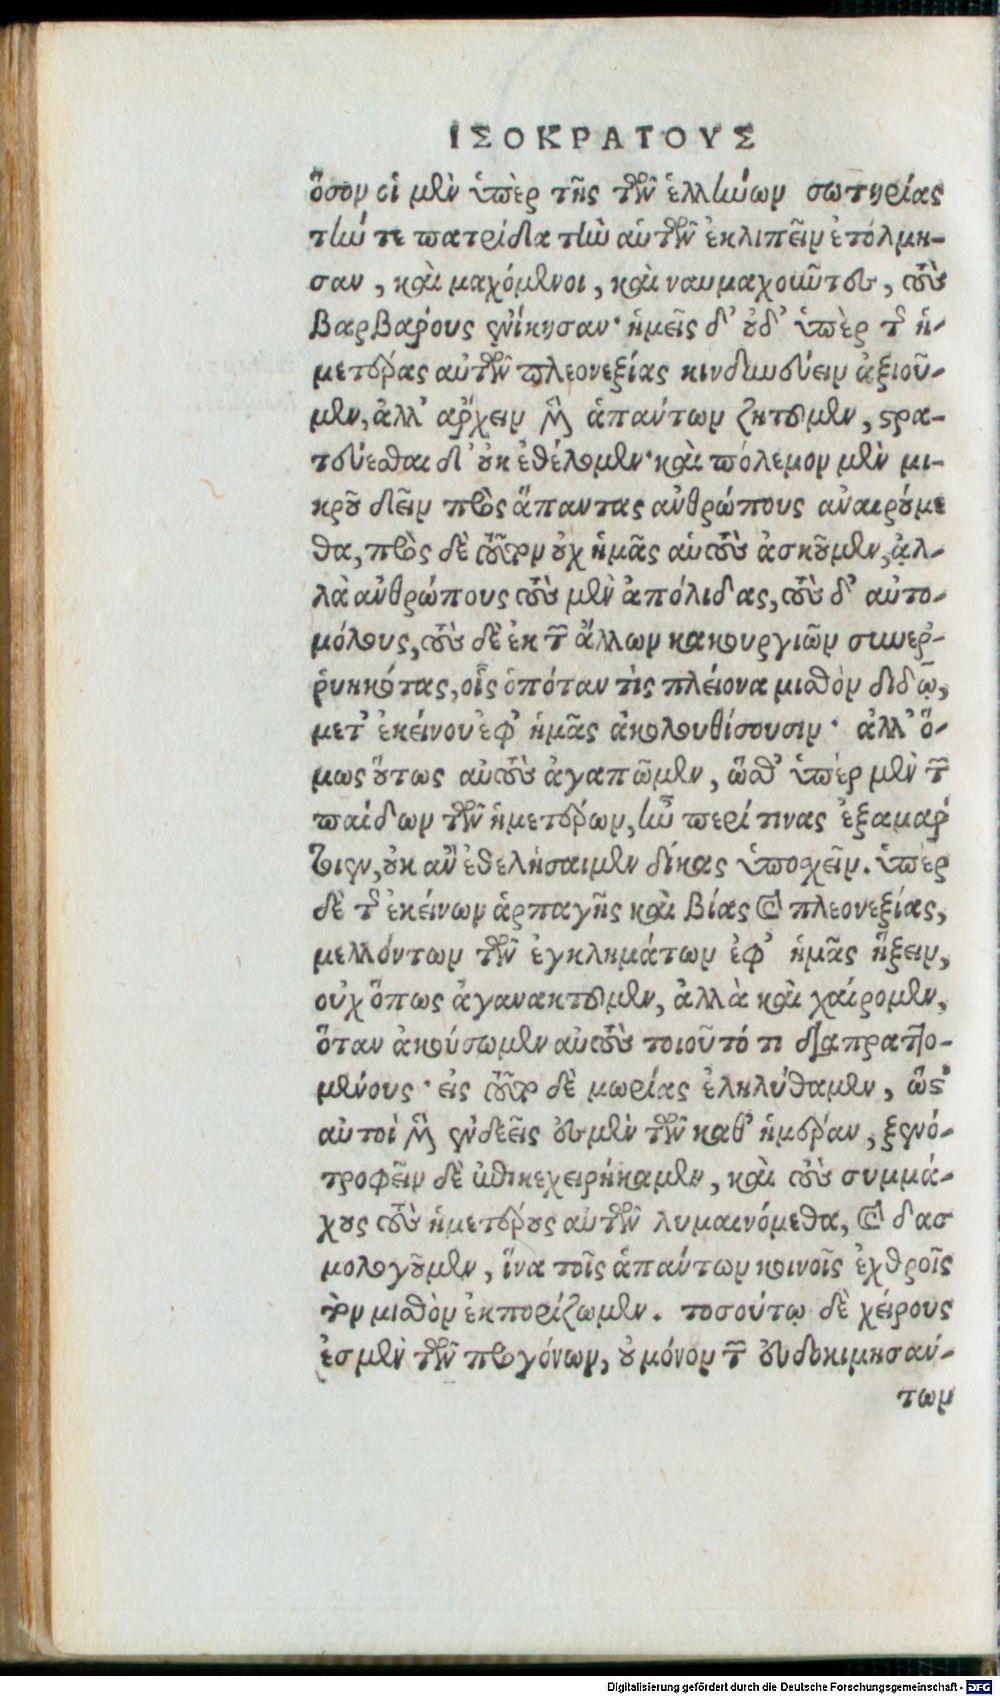 ΙΣΟΚΡΑΤΟΥΣ
ὅσον οἱ μὲν ὑπὲρ τῆς τῶν ἑλλήνων σωτηρίας
τήν τε πατρίδα τὴν αὑτῶν ἐκλιπεῖν ἐτόλμη-
σαν, καὶ μαχόμενοι, καὶ ναυμαχοῦντες, τοὺς
βαρβάρους ἐνίκησαν· ἡμεῖς δ' οὐδ' ὑπὲρ τῆς ἡ-
μετέρας αὐτῶν πλεονεξίας κινδυνεύειν ἀξιοῦ-
μεν, ἀλλ' ἄρχειν μὲν ἁπάντων ζητοῦμεν, στρα-
τεύεσθαι δ' οὐκ ἐθέλομεν· καὶ πόλεμον μὲν μι-
κροῦ δεῖν πρὸς ἅπαντας ἀνθρώπους ἀναιρούμε
θα, πρὸς δὲ τοῦτον οὐχ ἡμᾶς αὐτοὺς ἀσκοῦμεν, ἀλ-
λὰ ἀνθρώπους τοὺς μὲν ἀπόλιδας, τοὺς δ' αὐτο-
μόλους, τοὺς δὲ ἐκ τῶν ἄλλων κακουργιῶν συνερ-
ρυηκότας, οἷς ὁπόταν τὶς πλείονα μισθὸν διδῷ,
μετ' ἐκείνου ἐφ' ἡμᾶς ἀκολουθίσουσιν· ἀλλ' ὅ-
μως οὕτως αὐτοὺς ἀγαπῶμεν, ὥσθ' ὑπὲρ μὲν τῶν
παίδων τῶν ἡμετέρων, ἢν περί τινας ἐξαμάρ
τωσιν, οὐκ ἂν ἐθελήσαιμεν δίκας ὑποσχεῖν. ὑπὲρ
δὲ τῆς ἐκείνων ἁρπαγῆς καὶ βίας καὶ πλεονεξίας,
μελλόντων τῶν ἐγκλημάτων ἐφ' ἡμᾶς ἥξειν,
οὐχ ὅπως ἀγανακτοῦμεν, ἀλλὰ καὶ χαίρομεν,
ὅταν ἀκούσωμεν αὐτοὺς τοιοῦτό τι διαπραττο-
μένους· εἰς τοῦτο δὲ μωρίας ἐληλύθαμεν, ὥστ'
αὐτοὶ μὲν ἐνδεεῖς ἐσμὲν τῶν καθ' ἡμέραν, ξενο-
τροφεῖν δὲ ἐπικεχειρήκαμεν, καὶ τοὺς συμμά-
χους τοὺς ἡμετέρους αὐτῶν λυμαινόμεθα, καὶ δασ
μολογοῦμεν, ἵνα τοῖς ἁπάντων κοινοῖς ἐχθροῖς
τὸν μισθὸν ἐκπορίζωμεν. τοσούτῳ δὲ χείρους
ἐσμὲν τῶν προγόνων, οὐ μόνον τῶν εὐδοκιμησάν-
των
Digitalisierung gefördert durch die Deutsche Forschungsgemeinschaft - DFG